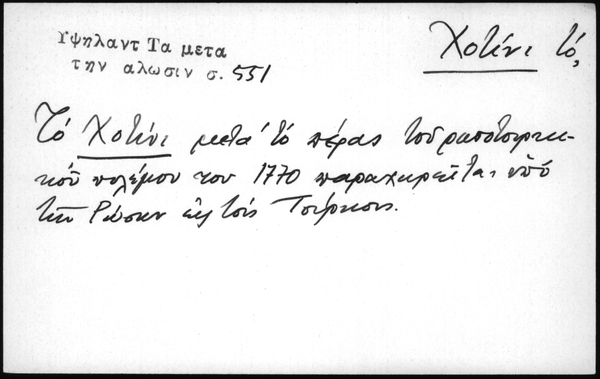 Χοτίνι τό,
Υψηλαντ Τα μετα
την αλωσιν σ. 551
Τό Χοτίνι μετά τό πέρας τοῦ ρωσοτουρκι-
κοῦ πολέμου του 1770 παραχωρεῖται ὑπό
τῶν Ρώσων εἰς τούς Τούρκους.